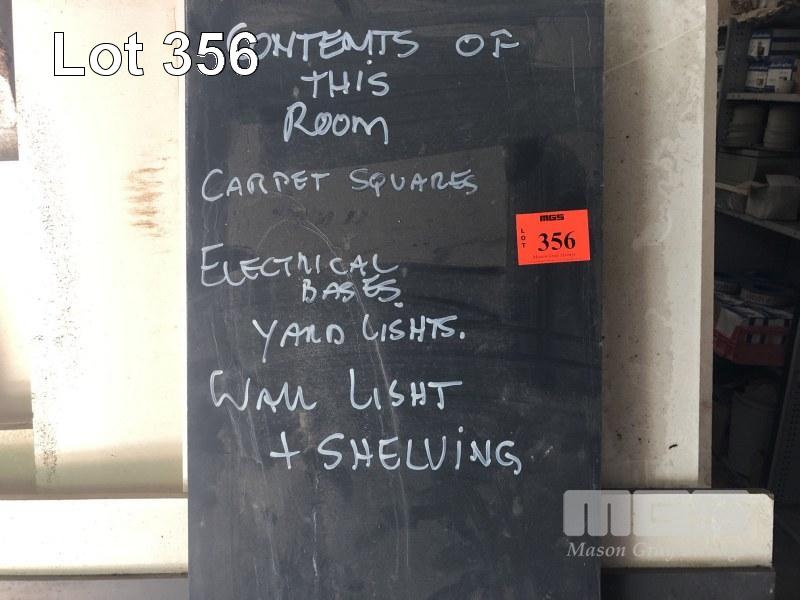 Lot 356
CONTENTS OF
THIS
ROOM
CARPET SQUARES
MGS
LOT
356
ELECTRICAL
BASES.
YARD LIGHTS.
WALL LIGHT
+ SHELVING
MGS
Mason Gray